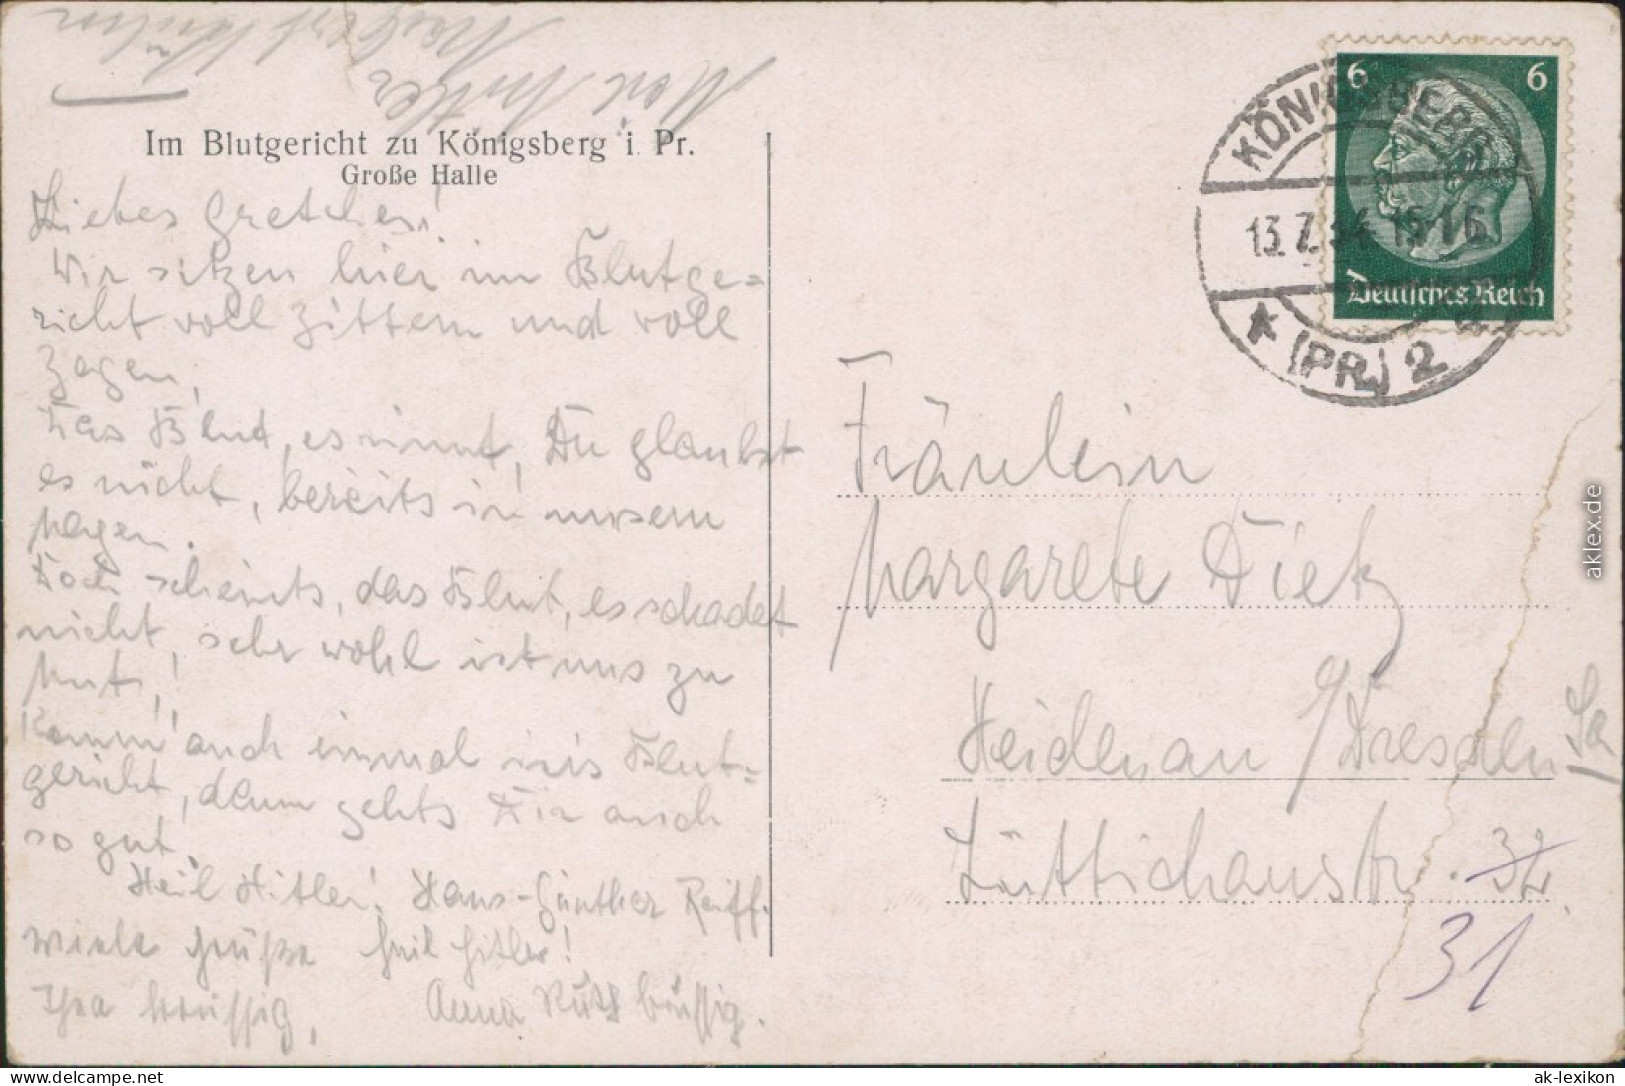 Im Blutgericht zu Königsberg i. Pr.
Große Halle
Liebes Gretchen!
Wir sitzen hier im Blutge=
richt voll Zittern und voll
Zagen,
Das Blut, es rinnt, Du glaubst
es nicht, bereits in unsern
Magen.
Doch scheints, das Blut, es schadet
nicht, sehr wohl ist uns zu
Mut!
Komm auch einmal ins Blut=
gericht, dann gehts Dir auch
so gut.
Heil Hitler! Hans-Günther Reiff.
Viele Grüße Heil Hitler!
Anna Ruth
6 6
Deutsches Reich
KÖNIGSBERG
13.7.34 15-16
* (PR) 2
Fräulein
Margarete Dietz
Heidenau /Dresden
Sa
Lüttichaustr. 32
31
aklex.de
delcampe.net
ak-lexikon